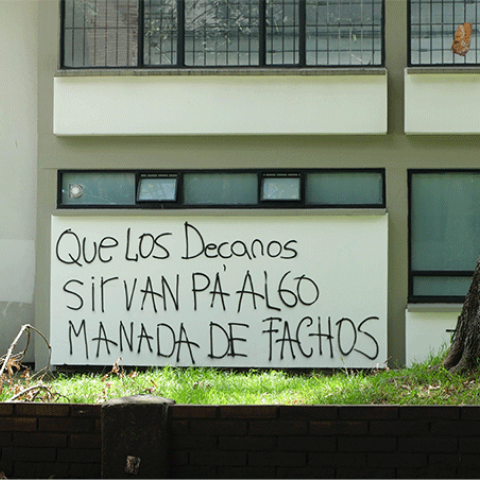 Que Los Decanos
SIRVAN PÁ ALGO
MANADA DE FACHOS